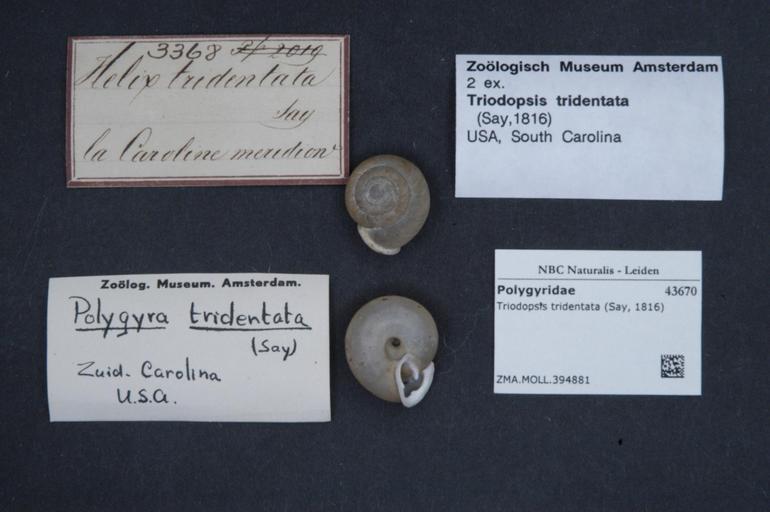 3368
Helix tridentata
Say
la Caroline meridion
Zoölogisch Museum Amsterdam
2 ex.
Triodopsis tridentata
(Say,1816)
USA, South Carolina
Zoölog. Museum. Amsterdam.
Polygyra tridentata
(Say)
Zuid. Carolina
U.S.A.
NBC Naturalis - Leiden
Polygyridae 43670
Triodopsis tridentata (Say, 1816)
ZMA.MOLL.394881